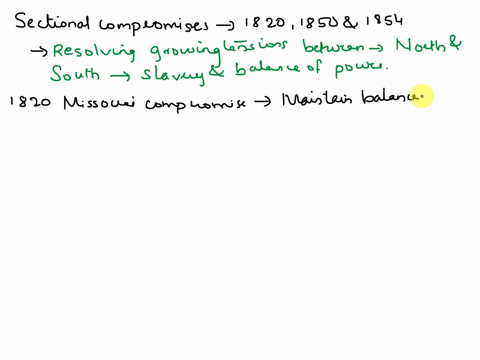 Sectional compromises → 1820, 1850 & 1854
→ Resolving growing tensions between → North &
South → slavery & balance of power.
1820 Missouri compromise → Maintain balance.